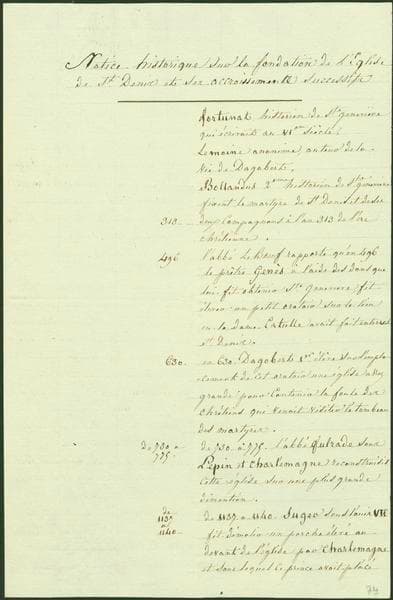 Notice historique sur la fondation de l'Eglise
de St. Denis et ses accroissements successifs
Fortunat historien de Ste Geneviève
qui écrivait au VIme siècle,
Lemoine anonyme auteur de la
vie de Dagobert,
Bollandus 2eme historien de Ste Genevieve
fixent le martyre de St Denis et de ses
313 deux Compagnons à l'an 313 de l'ère
chrétienne.
496 l'abbé Le Bœuf rapporte qu'en 496
le prêtre Genès à l'aide des dons que
lui fit obtenir Ste Genevieve, fit
élever un petit oratoire sur le lieu
où la dame Catulle avait fait enterrer
St Denis
630 en 630 Dagobert 1er élève sur l'empla-
cement de cet oratoire une église assez
grande pour contenir la foule des
chrétiens qui venoit visiter le tombeau
des martyrs.
de 730 à de 730 à 775. l'abbé Fulrade sous
775. Pepin et Charlemagne reconstruisit
cette eglise sur une plus grande
dimention.
de
1137 de 1137 à 1140 Suger sous Louis VII
à
1140 fit démolir un porche élevé au
devant de l'église par Charlemagne
et sous lequel ce prince avait placé
74